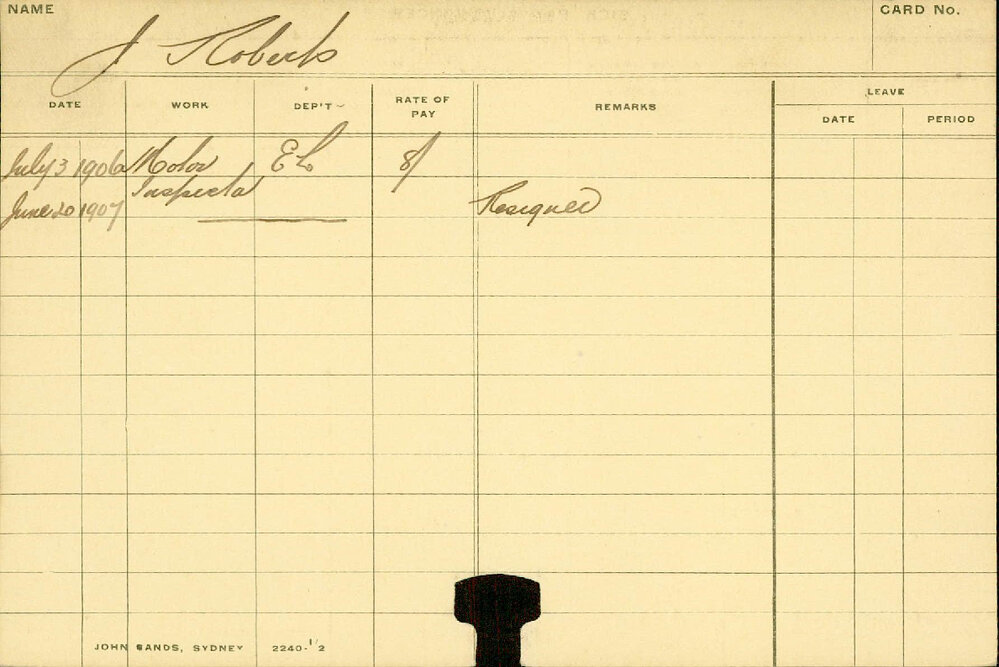 NAME
J Roberts
CARD No.
DATE WORK DEP'T RATE OF PAY REMARKS LEAVE
DATE PERIOD
July 3 1906 Motor EL 8/
Inspector
June 20 1907 Resigned
JOHN SANDS, SYDNEY 2240-1/2